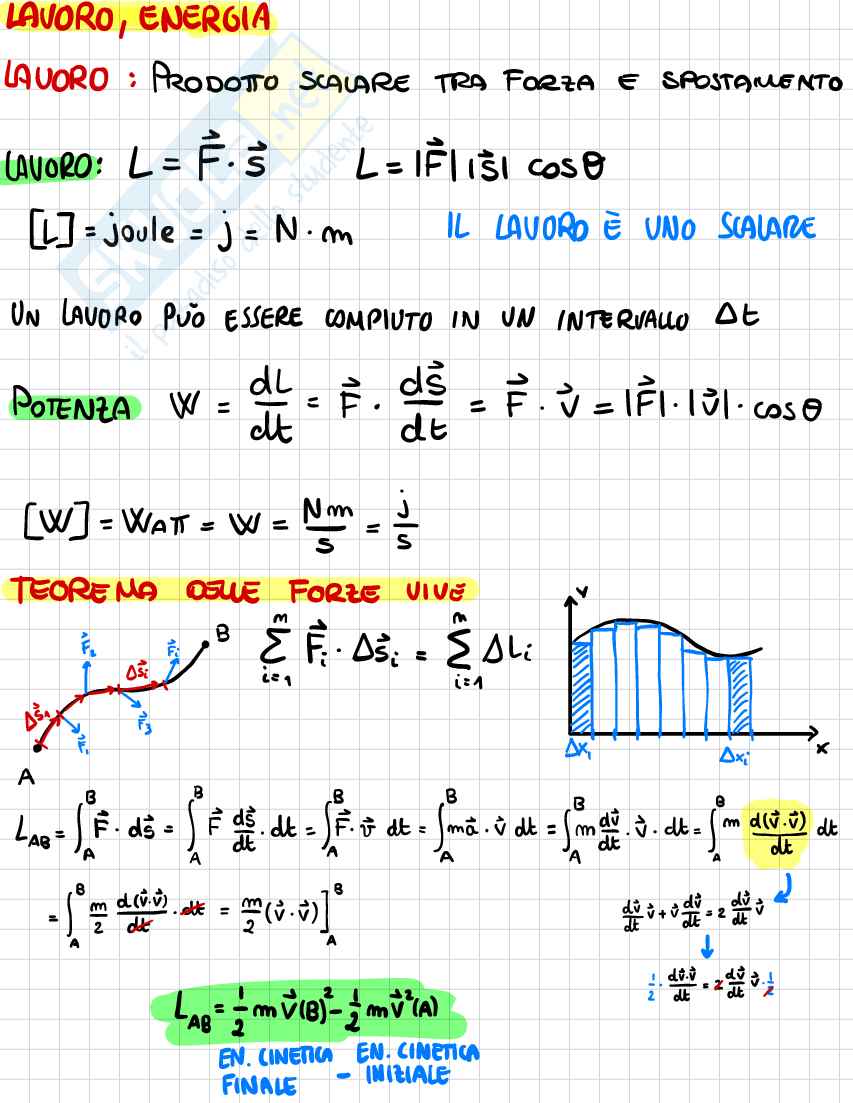 LAVORO, ENERGIA
LAVORO : PRODOTTO SCALARE TRA FORZA E SPOSTAMENTO
LAVORO: L = F⃗ · s⃗   L = |F⃗| |s⃗| cosθ
[L] = joule = j = N · m   IL LAVORO È UNO SCALARE
UN LAVORO PUÒ ESSERE COMPIUTO IN UN INTERVALLO Δt
POTENZA W = dL/dt = F⃗ · ds⃗/dt = F⃗ · v⃗ = |F⃗| · |v⃗| · cosθ
[W] = WATT = W = Nm/s = j/s
TEOREMA DELLE FORZE VIVE
A Δs⃗₁ F⃗₁ F⃗₂ F⃗₃ Δs⃗i F⃗i B
∑ᵢ₌₁ⁿ F⃗i · Δs⃗i = ∑ᵢ₌₁ⁿ ΔLi
y Δx₁ Δxi x
L_AB = ∫_A^B F⃗ · ds⃗ = ∫_A^B F⃗ ds⃗/dt · dt = ∫_A^B F⃗ · v⃗ dt = ∫_A^B ma⃗ · v⃗ dt = ∫_A^B m dv⃗/dt · v⃗ · dt = ∫_A^B m d(v⃗·v⃗)/dt dt
= ∫_A^B m/2 d(v⃗·v⃗)/dt · dt = m/2 (v⃗ · v⃗)]_A^B
dv⃗/dt v⃗ + v⃗ dv⃗/dt = 2 dv⃗/dt v⃗
1/2 · dv⃗·v⃗/dt = 2 dv⃗/dt v⃗ · 1/2
L_AB = 1/2 m v⃗(B)² - 1/2 m v⃗²(A)
EN. CINETICA FINALE - EN. CINETICA INIZIALE
SKUOLA.net
il paradiso dello studente